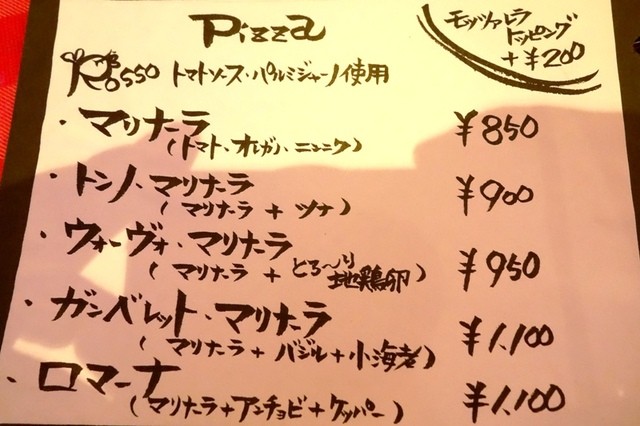 Pizza
モッツァレラ
トッピング
+¥200
Rosso トマトソース・パルミジャーノ使用
・マリナーラ ¥850
(トマト、オレガノ、ニンニク)
・トンノ・マリナーラ ¥900
(マリナーラ + ツナ)
・ウォーヴォ・マリナーラ ¥950
(マリナーラ + とろ〜り地鶏卵)
・ガンベレット・マリナーラ ¥1,100
(マリナーラ+バジル+小海老)
・ロマーナ ¥1,100
(マリナーラ+アンチョビ+ケッパー)